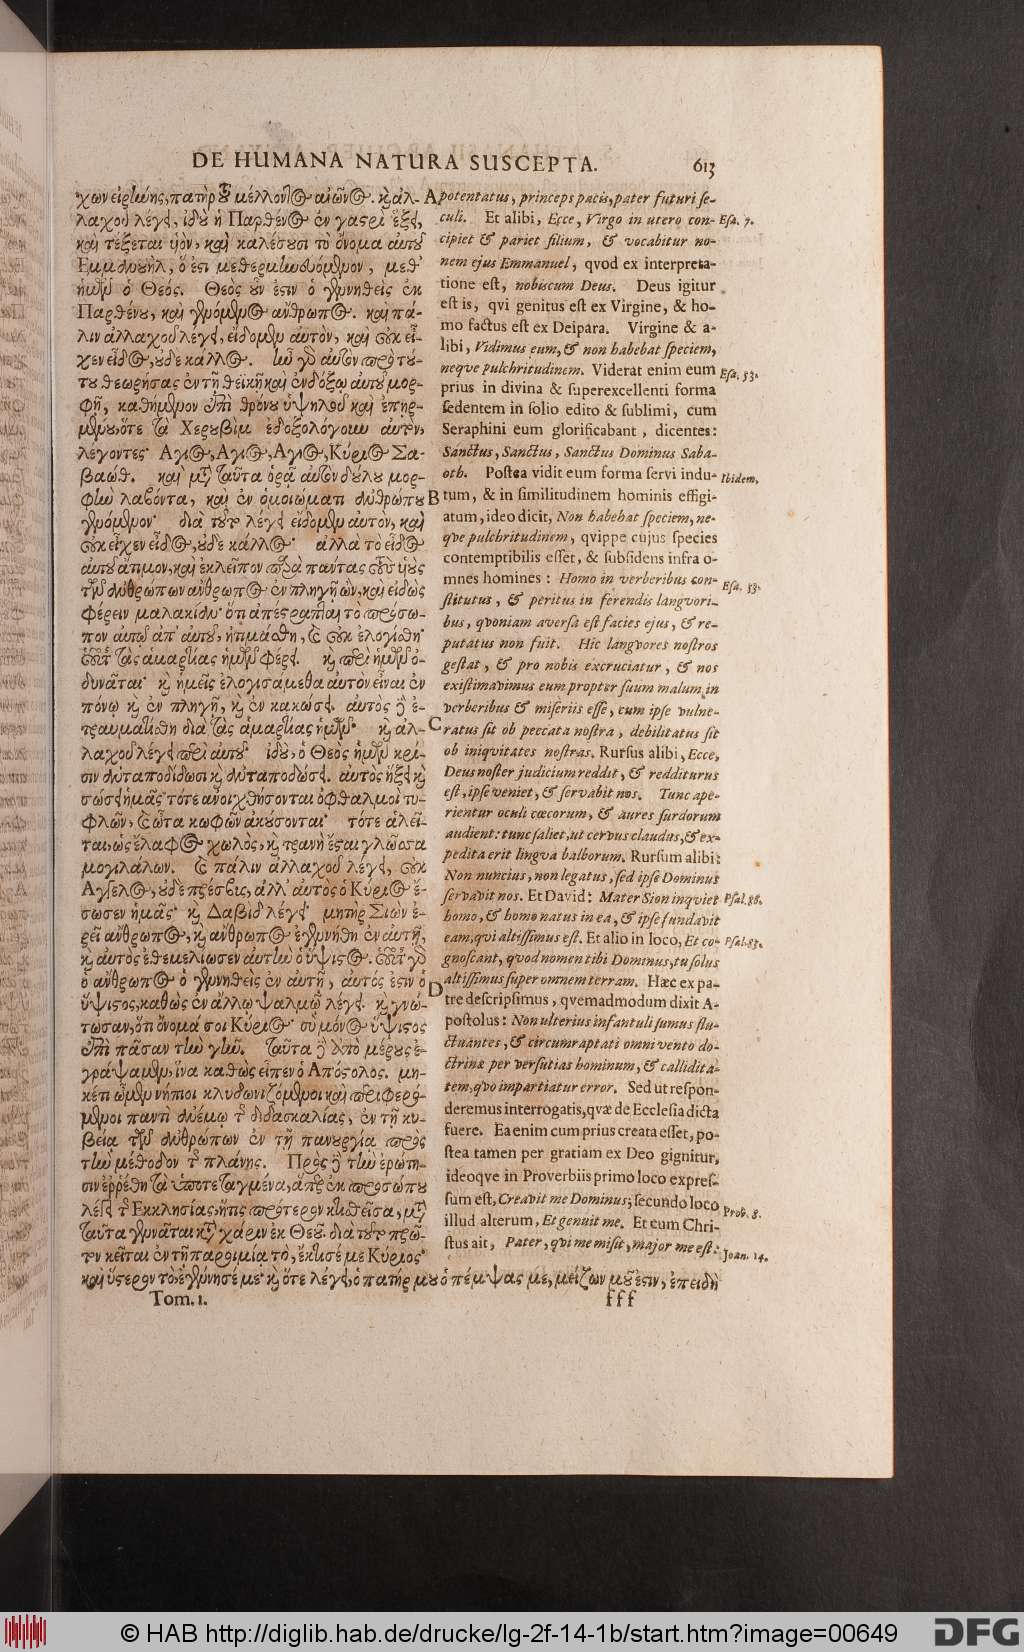 DE HUMANA NATURA SUSCEPTA. 613
χων εἰρήνης, πατὴρ τοῦ μέλλοντος αἰῶνος. καὶ ἀλ-
λαχοῦ λέγει, ἰδοὺ ἡ Παρθένος ἐν γαστρὶ ἕξει,
καὶ τέξεται υἱὸν, καὶ καλέσουσι τὸ ὄνομα αὐτοῦ
Ἐμμανουὴλ, ὅ ἐστι μεθερμηνευόμενον, μεθ'
ἡμῶν ὁ Θεός. Θεὸς οὖν ἐστιν ὁ γεννηθεὶς ἐκ
Παρθένου, καὶ γενόμενος ἄνθρωπος. καὶ πά-
λιν ἀλλαχοῦ λέγει, εἴδομεν αὐτὸν, καὶ οὐκ εἶ-
χεν εἶδος, οὐδὲ κάλλος. ἦν γὰρ αὐτὸν πρὸ τού-
του θεωρήσας ἐν τῇ θεϊκῇ καὶ ἐνδόξῳ αὐτοῦ μορ-
φῇ, καθήμενον ἐπὶ θρόνου ὑψηλοῦ καὶ ἐπηρ-
μένου, ὅτε τὰ Χερουβὶμ ἐδοξολόγουν αὐτὸν,
λέγοντες Αγιος, Αγιος, Αγιος, Κύριος Σα-
βαώθ. καὶ μετὰ ταῦτα ὁρᾷ αὐτὸν δούλου μορ-
φὴν λαβόντα, καὶ ἐν ὁμοιώματι ἀνθρώπου
γενόμενον· διὰ τοῦτο λέγει εἴδομεν αὐτὸν, καὶ
οὐκ εἶχεν εἶδος, οὐδὲ κάλλος· ἀλλὰ τὸ εἶδος
αὐτοῦ ἄτιμον, καὶ ἐκλεῖπον παρὰ πάντας τοὺς υἱοὺς
τῶν ἀνθρώπων ἄνθρωπος ἐν πληγῇ ὢν, καὶ εἰδὼς
φέρειν μαλακίαν· ὅτι ἀπέστραπται τὸ πρόσω-
πον αὐτοῦ ἀπ' αὐτοῦ, ἠτιμάσθη, καὶ οὐκ ἐλογίσθη·
οὗτος τὰς ἁμαρτίας ἡμῶν φέρει. καὶ περὶ ἡμῶν ὀ-
δυνᾶται· καὶ ἡμεῖς ἐλογισάμεθα αὐτὸν εἶναι ἐν
πόνῳ καὶ ἐν πληγῇ, καὶ ἐν κακώσει. αὐτὸς δὲ ἐ-
τραυματίσθη διὰ τὰς ἁμαρτίας ἡμῶν· καὶ ἀλ-
λαχοῦ λέγει περὶ αὐτοῦ· ἰδοὺ, ὁ Θεὸς ἡμῶν κρί-
σιν ἀνταποδίδωσι καὶ ἀνταποδώσει. αὐτὸς ἥξει καὶ
σώσει ἡμᾶς· τότε ἀνοιχθήσονται ὀφθαλμοὶ τυ-
φλῶν, καὶ ὦτα κωφῶν ἀκούσονται· τότε ἁλεῖ-
ται, ὡς ἔλαφος χωλὸς, καὶ τρανὴ ἔσται γλῶσσα
μογιλάλων. καὶ πάλιν ἀλλαχοῦ λέγει, οὐκ
Αγγελος, οὐδὲ πρέσβις, ἀλλ' αὐτὸς ὁ Κύριος ἔ-
σωσεν ἡμᾶς· καὶ Δαβὶδ λέγει· μητὴρ Σιὼν ἐ-
ρεῖ ἄνθρωπος, καὶ ἄνθρωπος ἐγεννήθη ἐν αὐτῇ,
καὶ αὐτὸς ἐθεμελίωσεν αὐτὴν ὁ ὕψιστος. οὗτος γὰρ
ὁ ἄνθρωπος ὁ γεννηθεὶς ἐν αὐτῇ, αὐτός ἐστιν ὁ
ὕψιστος, καθὼς ἐν ἄλλῳ ψαλμῷ λέγει. καὶ γνώ-
τωσαν, ὅτι ὄνομά σοι Κύριος· σὺ μόνος ὕψιστος
ἐπὶ πᾶσαν τὴν γῆν. ταῦτα δὲ ἀπὸ μέρους ἐ-
γράψαμεν, ἵνα καθὼς εἶπεν ὁ Απόστολος. μη-
κέτι ὦμεν νήπιοι κλυδωνιζόμενοι καὶ περιφερό-
μενοι παντὶ ἀνέμῳ τῆς διδασκαλίας, ἐν τῇ κυ-
βείᾳ τῶν ἀνθρώπων ἐν τῇ πανουργίᾳ πρὸς
τὴν μέθοδον τῆς πλάνης. Πρὸς δὲ τὴν ἐρώτη-
σιν ἐῤῥέθη τὰ ὑποτεταγμένα, ἅπερ ἐκ προσώπου
λέγει τῆς Εκκλησίας, ἥτις πρότερον κτισθεῖσα, μετὰ
ταῦτα γεννᾶται κατὰ χάριν ἐκ Θεοῦ. διὰ τοῦτο πρῶ-
τον κεῖται ἐν τῇ παροιμίᾳ τὸ, ἔκτισέ με Κύριος·
καὶ ὕστερον τὸ ἐγέννησέ με· καὶ ὅτε λέγει, ὁ πατήρ μου ὁ πέμψας με, μείζων μού ἐστιν, ἐπειδὴ
A potentatus, princeps pacis, pater futuri se-
culi. Et alibi, Ecce, Virgo in utero con- Esa. 7.
cipiet & pariet filium, & vocabitur no-
nem ejus Emmanuel, qvod ex interpreta-
tione est, nobiscum Deus. Deus igitur
est is, qvi genitus est ex Virgine, & ho-
mo factus est ex Deipara. Virgine & a-
libi, Vidimus eum, & non habebat speciem,
neque pulchritudinem. Viderat enim eum Esa. 53.
prius in divina & superexcellenti forma
sedentem in solio edito & sublimi, cum
Seraphini eum glorificabant, dicentes:
Sanctus, Sanctus, Sanctus Dominus Saba-
oth. Postea vidit eum forma servi indu- Ibidem.
B tum, & in similitudinem hominis effigi-
atum, ideo dicit, Non habebat speciem, ne-
qve pulchritudinem, qvippe cujus species
contemptibilis esset, & subsidens infra o-
mnes homines: Homo in verberibus con- Esa. 53.
stitutus, & peritus in ferendis langvori-
bus, qvoniam aversa est facies ejus, & re-
putatus non fuit. Hic langvores nostros
gestat, & pro nobis excruciatur, & nos
existimavimus eum propter suum malum in
verberibus & miseriis esse, cum ipse vulne-
C ratus sit ob peccata nostra, debilitatus sit
ob iniqvitates nostras. Rursus alibi, Ecce,
Deus noster judicium reddit, & redditurus
est, ipse veniet, & servabit nos. Tunc ape-
rientur oculi cœcorum, & aures surdorum
audient: tunc saliet, ut cervus claudus, & ex-
pedita erit lingva balborum. Rursum alibi:
Non nuncius, non legatus, sed ipse Dominus
servavit nos. Et David: Mater Sion inqviet Psal. 86.
homo, & homo natus in ea, & ipse fundavit
eam, qvi altissimus est. Et alio in loco, Et co- Psal. 83.
gnoscant, qvod nomen tibi Dominus, tu solus
D altissimus super omnem terram. Hæc ex pa-
tre descripsimus, qvemadmodum dixit A-
postolus: Non ulterius infantuli sumus flu-
ctuantes, & circumraptati omni vento do-
ctrinæ per versutias hominum, & callidita-
tem, qvo impartiatur error. Sed ut respon-
deremus interrogatis, qvæ de Ecclesia dicta
fuere. Ea enim cum prius creata esset, po-
stea tamen per gratiam ex Deo gignitur,
ideoqve in Proverbiis primo loco expres-
sum est, Creavit me Dominus; secundo loco Prov. 8.
illud alterum, Et genuit me. Et cum Chri-
stus ait, Pater, qvi me misit, major me est: Joan. 14.
Tom. 1. fff
© HAB http://diglib.hab.de/drucke/lg-2f-14-1b/start.htm?image=00649
DFG